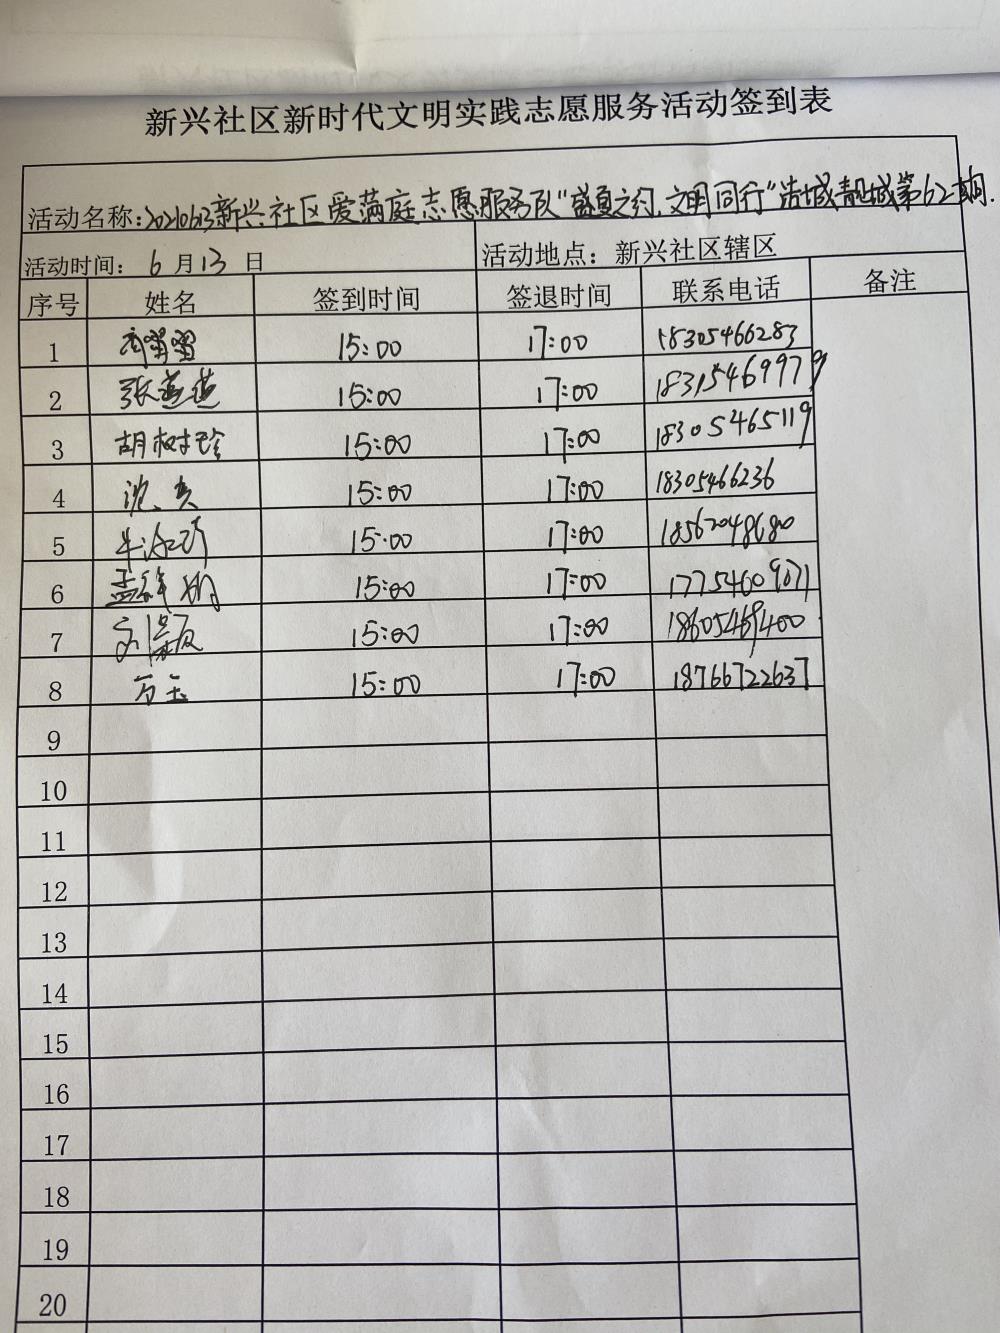 新兴社区新时代文明实践志愿服务活动签到表
活动名称：20210613新兴社区爱满庭志愿服务队"盛夏之约，文明同行"洁城靓城第62期.
活动时间： 6 月 13 日 活动地点：新兴社区辖区
序号 姓名 签到时间 签退时间 联系电话 备注
1 15:00 17:00 18305466283
2 张燕燕 15:00 17:00 18315469979
3 胡树珍 15:00 17:00 18305465119
4 15:00 17:00 18305466236
5 15:00 17:00 18562048680
6 孟祥娟 15:00 17:00 17754609071
7 15:00 17:00 18605469400
8 万玉 15:00 17:00 18766722637
9
10
11
12
13
14
15
16
17
18
19
20